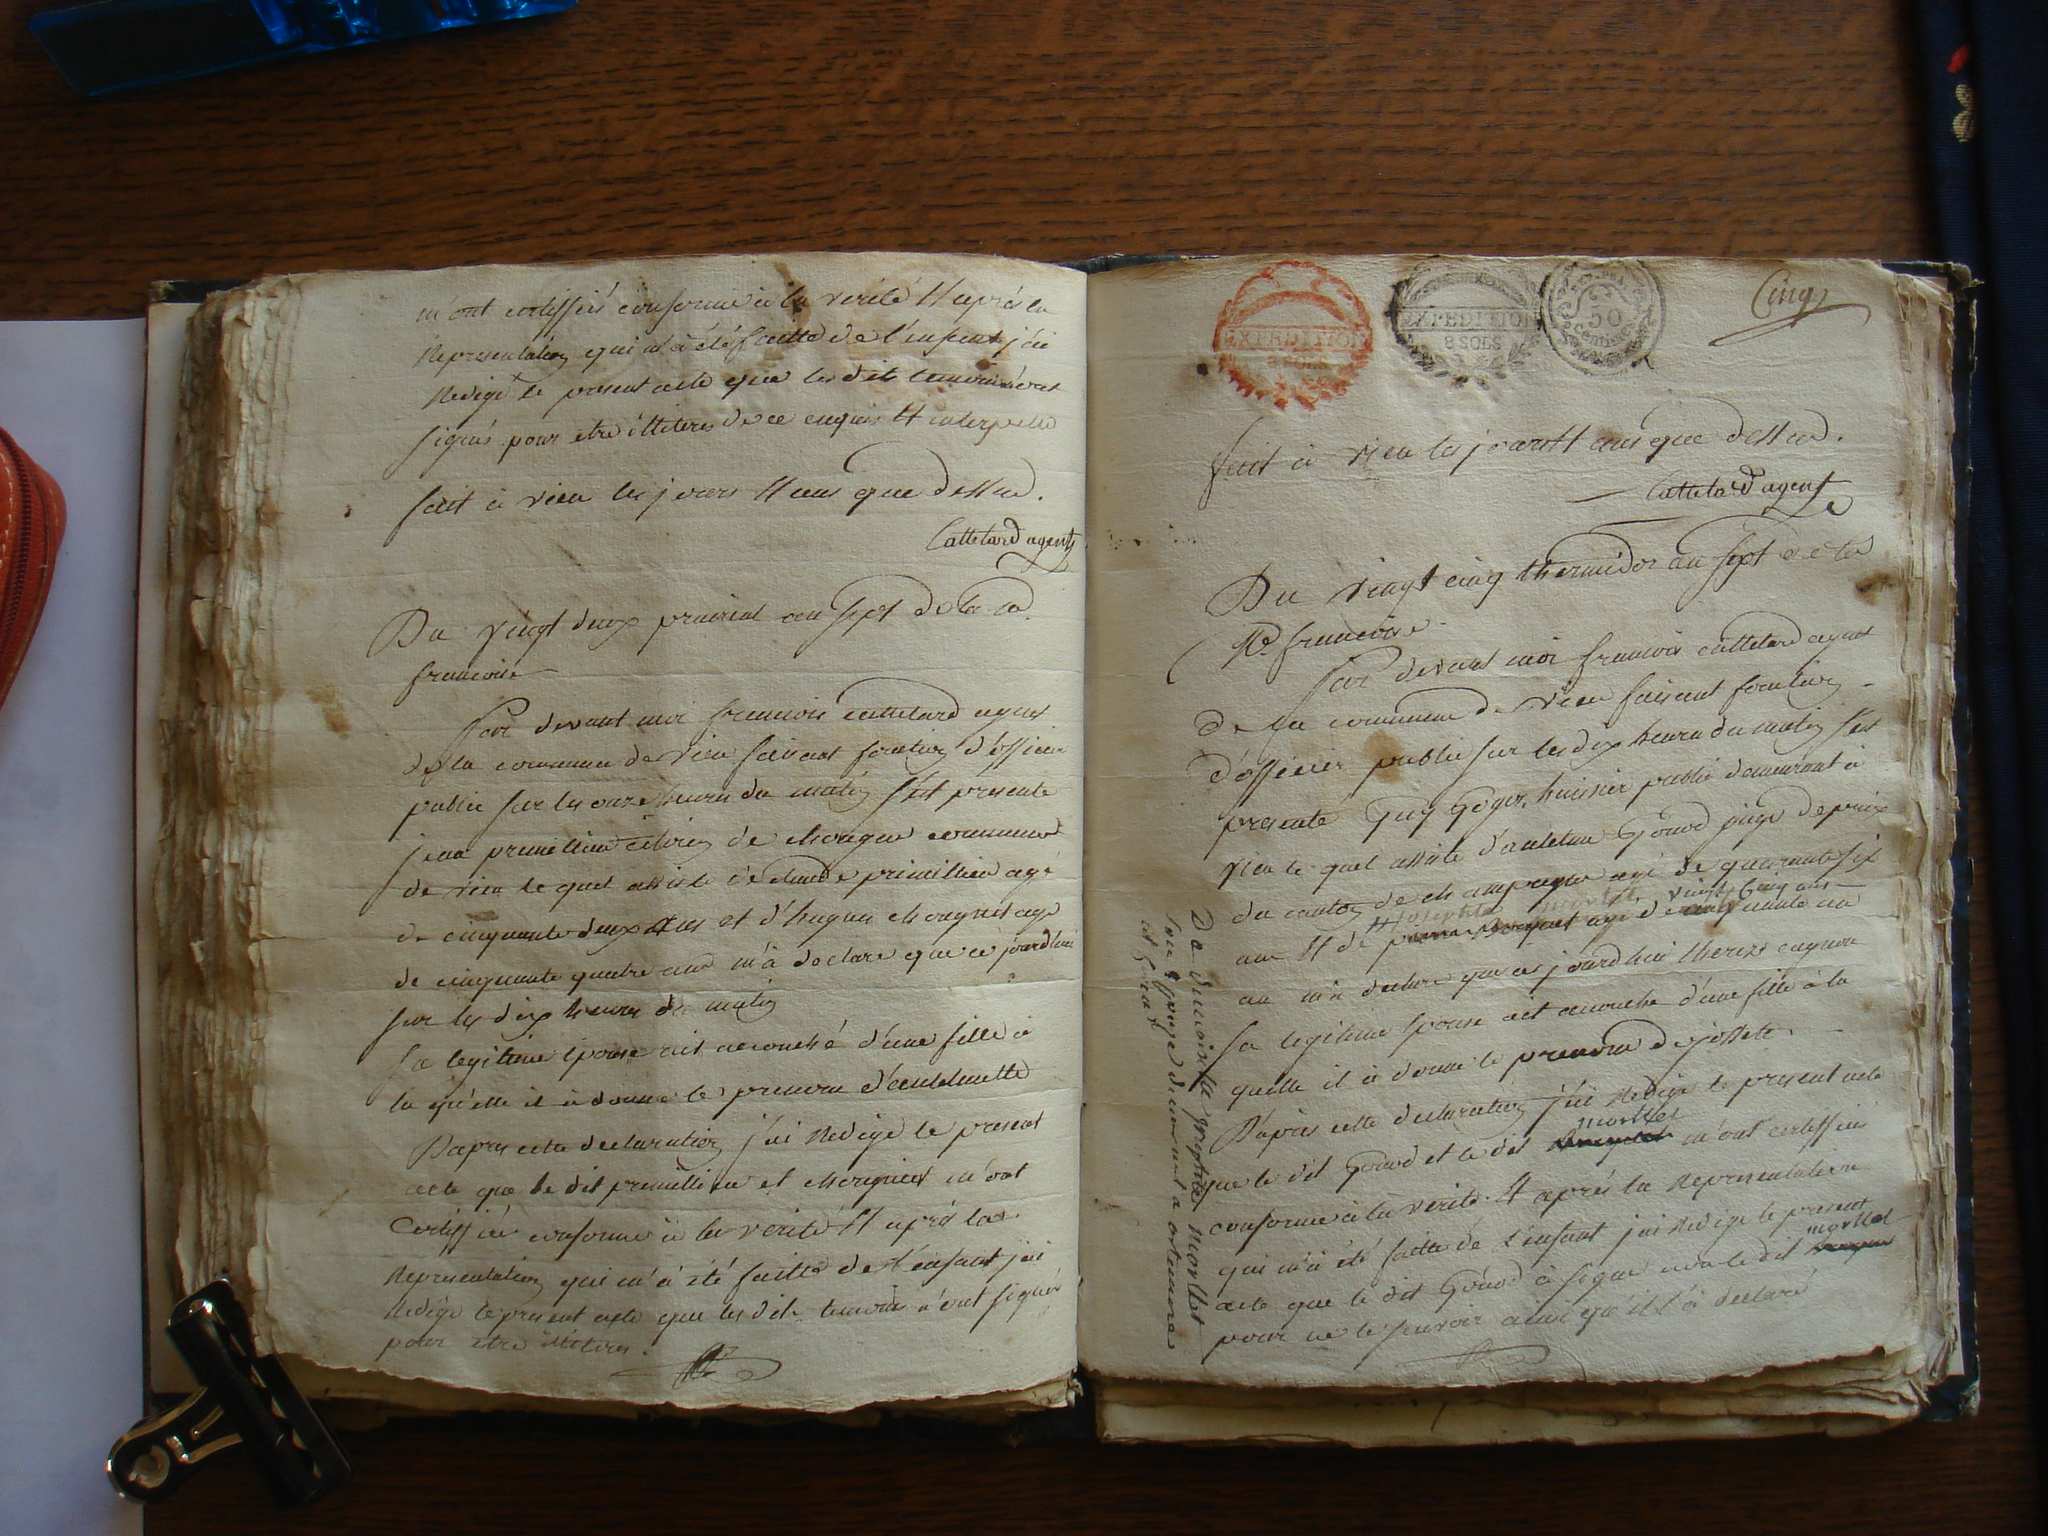 m'ont certiffiés conforme à la verité Et après la
Representation qui m'a été faitte de l'enfent j'ai
Redigé le present acte que les dits temoins n'ont
signés pour etre illiteres de ce enquis Et interpellé
fait à vieu les jours Et ans que dessus.
Cattelard agent
Du vingt deux prairial an sept de la
francoise
Par devant moi francois cattelard agent
de la commune de vieu faisant fonction d'officier
public sur les onze heures du matin s'est presenté
jean primillieu de chongne commune
de vieu le quel assisté de claude primillieu agé
de cinquante deux ans et d'hugues chongniet agé
de cinquante quatre ans m'à declare que ce jourd'hui
sur les dix heures du matin
sa legitime Epouse est accouché d'une fille à
la qu'elle il à donné le prenom d'enthelmette
D'apres cette declaration j'ai Redigé le present
acte que le dit primillieu et chongniet m'ont
Certiffié conforme à la verité Et après la
Representation qui m'à été faitte de l'enfant j'ai
Redigé le present acte que les dits temoins n'ont signés
pour etre illiteres.
EXPEDITION
8 SOLS
EXPEDITION
8 SOLS
50
Centimes
Cinq
fait à vieu les jours Et ans que dessus.
Cattelard agent
Du vingt cinq thermidor an sept de la
Re francoise
Par devant moi francois cattelard agent
de la commune de vieu faisant fonction
d'officier public sur les dix heures du matin s'est
presenté Guy Goger huissier public demeurant à
vieu le quel assisté d'antelme Gourd juge de paix
du canton de champagne agé de quarante six
josephte morttet vingt cinq ans
ans Et de agé de cinquante un
an m'a declare que ce jourd'hui therese cagnon
sa legitime Epouse est accouché d'une fille à la
quelle il à donné le prenom de josette
D'après cette declaration j'ai Redigé le present acte
morttet
que le dit Gourd et le dit m'ont certiffiés
conforme à la verité Et après la Representation
qui m'à été faitte de l'enfant j'ai Redigé le present
morttet
acte que le dit Gourd à signé non le dit
pour ne le savoir ainsi qu'il l'à declaré
De demoiselle josephte morttet
demeurant a artemare